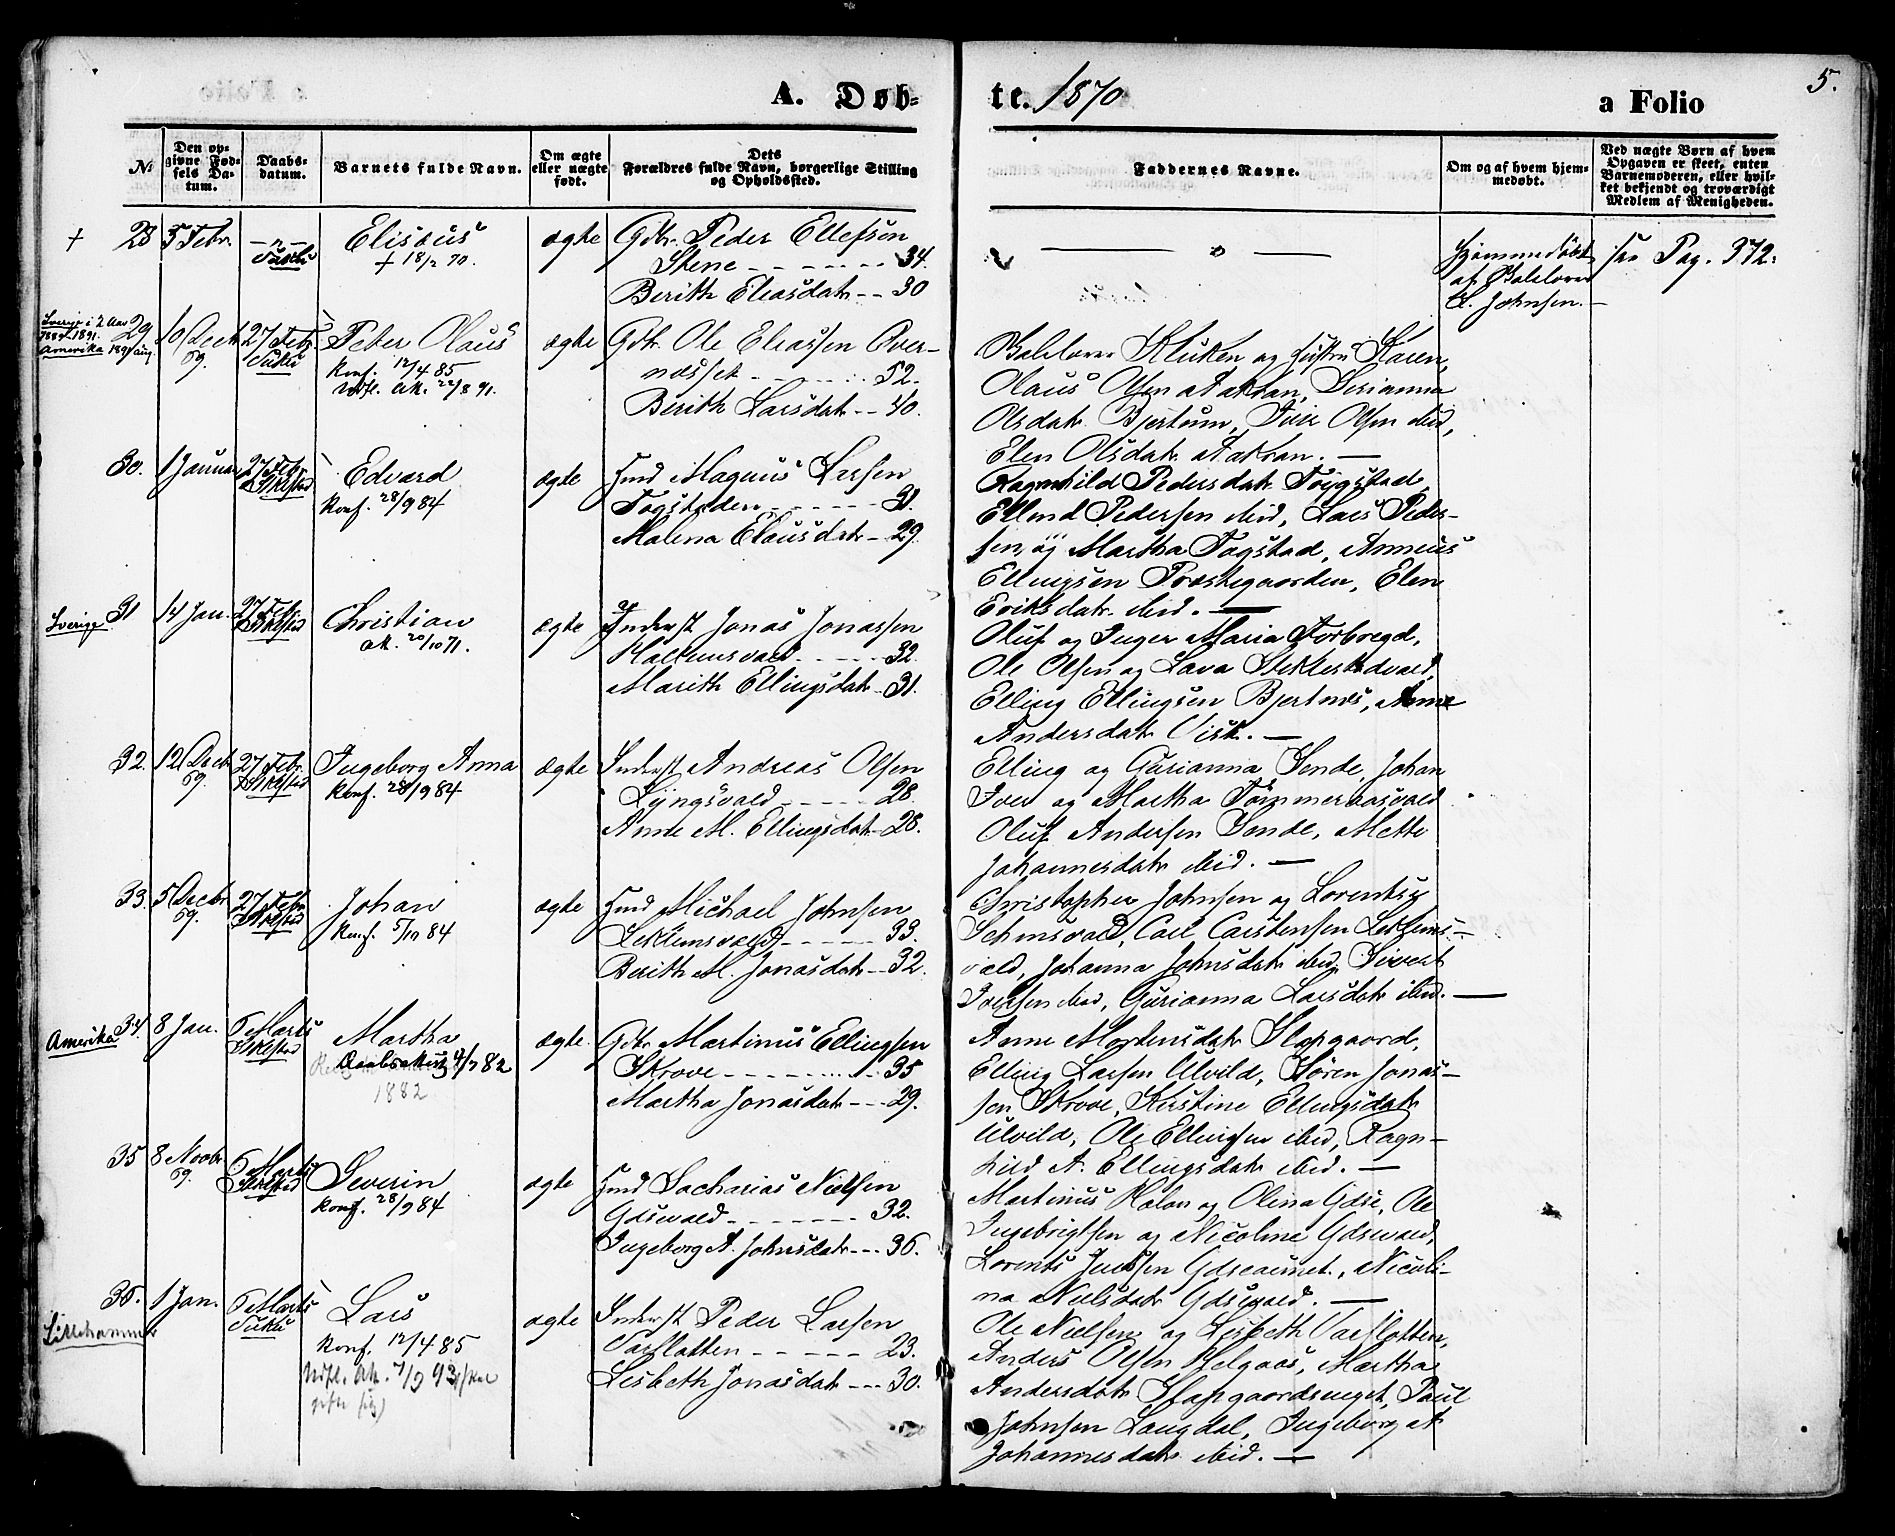 A. Døb-
te. 1870
a Folio
5.
№
Den opgivne Fødsels Datum.
Daabsdatum.
Barnets fulde Navn.
Om ægte eller uægte født.
Dets Forældres fulde Navn, borgerlige Stilling og Opholdssted.
Faddernes Navne.
Om og af hvem hjemmedøbt.
Ved uægte Børn af hvem Opgaven er skeet, enten Barnemoderen, eller hvilket bekjendt og troværdigt Medlem af Menigheden.
+ 28 5 Febr. -"-
Elisæus
+ 18/2 70.
ægte
Gdbr. Peder Ellefsen
Stene 34.
Berith Eliasdatr 30
Hjemmedøbt
af
L. Johnsen.
see Pag. 372.
Sverige i 2 Aar
Amerika
29 10 Decbr 69. 27 Febr.
Peter Olaus
Konf. 12/4 85
Udfl. Att. 22/8 91.
ægte
Gdbr. Ole Eliassen Over-
næsset 52.
Berith Larsdatr 40.
Kluken og Hustru Karen,
Olaus Olsen
Olsdatr Iver Olsen ibid,
Elen Olsdatr
30. 1 Januar 27 Febr.
Edvard
Konf. 28/9 84
ægte
Hmd Magnus Larsen
31.
Malena Elausdatr 29.
Ragnhild Pedersdatr
Ellend Pedersen ibid, Lars Peder-
sen og Martha
Ellingsen Præstegaarden, Elen
Eriksdatr ibid.
Sverige
31 14 Jan. 27 Febr.
Christian
att. 20/10 71.
ægte
Inderst Jonas Jonassen
32.
Marith Ellingsdatr 31.
Oluf og Inger Maria Forbregd,
Ole Olsen og Lava Stiklestadvald,
Elling Ellingsen Bjertnes, Anne
Andersdatr Visk.
32. 12 Decbr 69. 27 Febr.
Ingeborg Anna
Konf. 28/9 84
ægte
Inderst Andreas Olsen
Lyngsvald 28.
Anne M. Ellingsdatr 28.
Elling og Gurianna Sende, Johan
Iver og Martha
Oluf Andersen Sende, Mette
Johannesdatr ibid.
33. 5 Decbr 69. 27 Febr.
Johan
Konf. 5/10 84
ægte
Hmd Michael Johnsen
Leklemsvald 33.
Berith M. Jonasdatr 32.
Christopher Johnsen og Lorentse
Carl Carstensen Leklems-
vald, Johanna Johnsdatr ibid, Sivert
Iversen ibid, Gurianna Larsdatr ibid.
Amerika
34 8 Jan. 6 Marts
Martha
Daabsattest 4/7 82
1882
ægte
Gdbr Martinus Ellingsen
Skrove 35
Martha Jonasdatr 29.
Anne Mortensdatr Slapgaard,
Elling Larsen Ulvild, Søren Jonas-
sen Skrove, Kirstine Ellingsdatr
Ulvild, Ole Ellingsen ibid, Ragn-
hild A. Ellingsdatr ibid.
35 8 Novbr 69. 6 Marts
Severin
Konf. 28/9 84
ægte
Hmd Sacharias Nielsen
Ydsevald 32.
Ingeborg A. Johnsdatr 36.
Martinus Holan og Olina Ydse, Ole
Ingebrigtsen og Nicoline Ydsevald,
Lorents Ydseaunet, Nicoli-
na Nielsdatr Ydsevald.
Lillehammer
36. 1 Jan. 6 Marts
Lars
Konf. 12/4 85
Udfl. Att. 7/9 93
ægte
Inderst Peder Larsen
Varslotten 23.
Lisbeth Jonasdatr 30.
Ole Nielsen og Lisbeth Varslotten,
Anders Olsen Helgaas, Martha
Andersdatr Slapgaardsenget, Paul
Johnsen Langdal, Ingeborg A
Johannesdatr ibid.